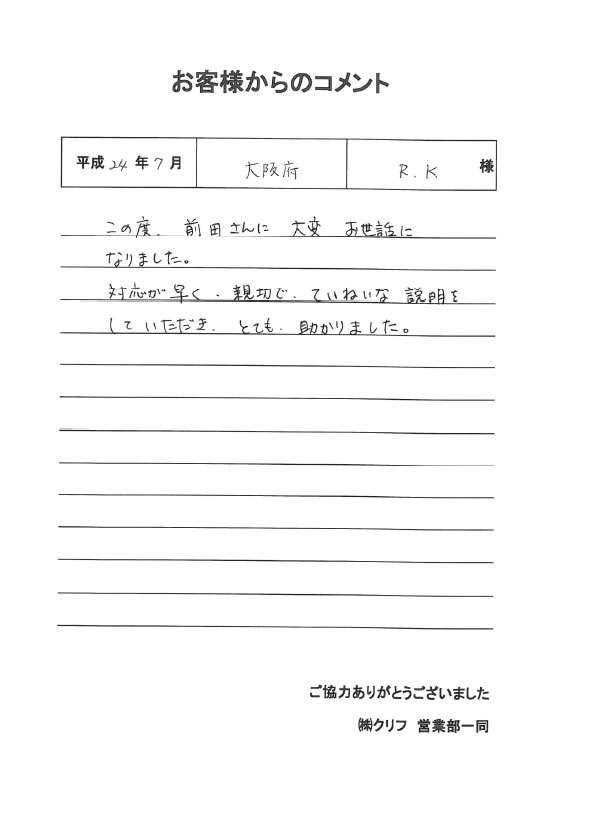 お客様からのコメント
平成24年7月 大阪府 R.K 様
この度、前田さんに 大変 お世話に
なりました。
対応が早く、親切で、ていねいな 説明を
して いただき、とても、助かりました。
ご協力ありがとうございました
㈱クリフ 営業部一同